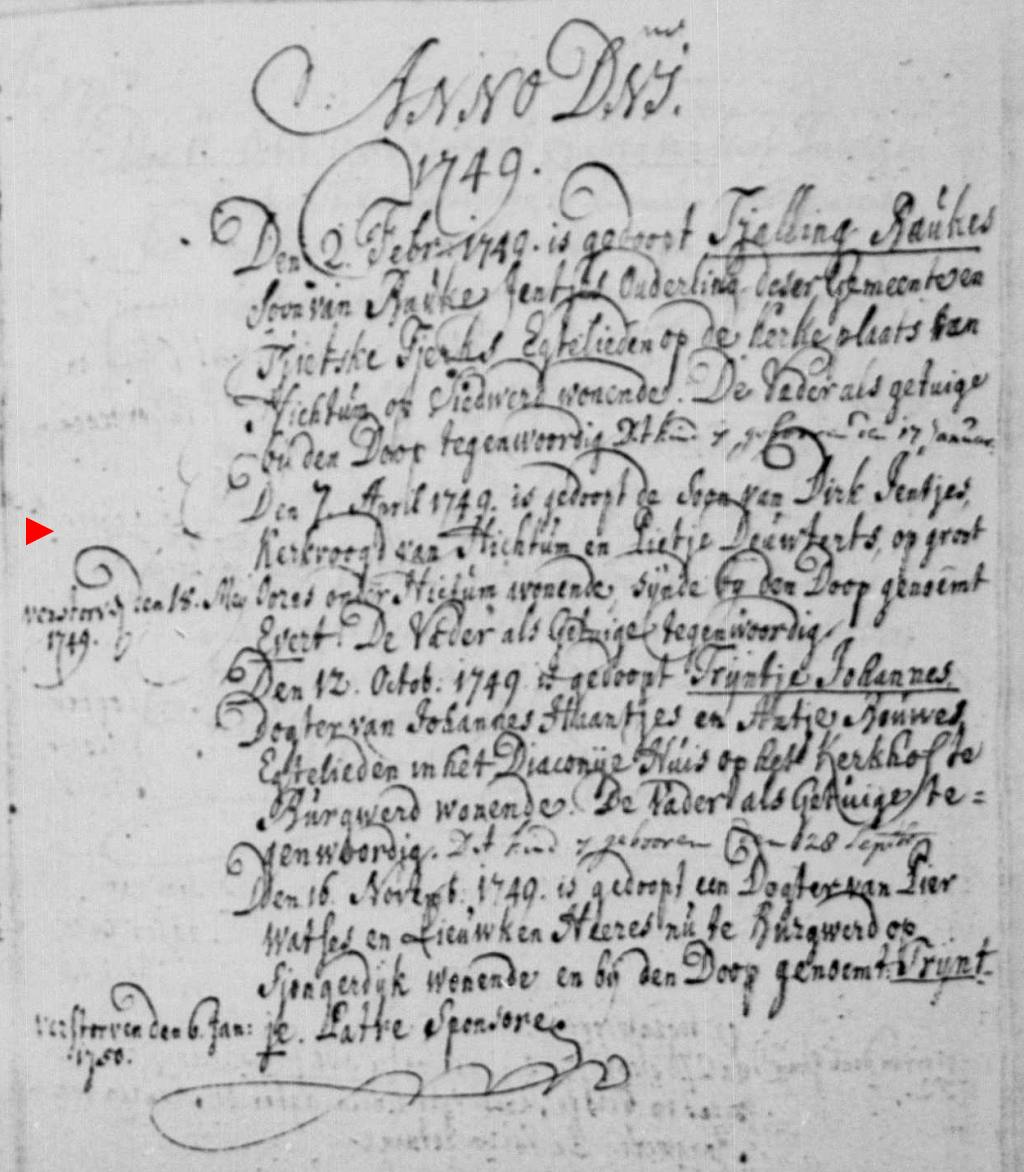 ANNO DNI.
1749.
Den 2. Febr. 1749. is gedoopt Tjelling Raukes
Soon van Rauke Jentjes Ouderling deser Gemeente en
Tjietske Tjerks Egtelieden op de kerke plaats van
Hichtum op Siedwerd wonende. De Vader als getuige
by den Doop tegenwoordig Dit kind is geboren den 17 Januar.
Den 7. April 1749. is gedoopt de Soon van Dirk Jentjes,
Kerkvoogd van Hichtum en Pietje Deuwterts, op groot
verstorven den 18. Mey
1749.
onder Hictum wonende, synde by den Doop genoemt
Evert. De Vader als Getuige tegenwoordig.
Den 12. Octob. 1749. is gedoopt Tryntje Johannes,
Dogter van Johannes Haantjes en Antje Rouwes,
Egtelieden in het Diaconije Huis op het Kerkhof te
Burgwerd wonende. De Vader als Getuige te=
genwoordig. Dit kind is gebooren den 28 Septbr
Den 16. Novemb. 1749. is gedoopt een Dogter van Pier
Watses en Lieuwken Heeres nu te Burgwerd op
Sjongerdyk wonende en by den Doop genoemt Trynt-
verstorven den 6. Jan:
1750.
je. Patre Sponsore